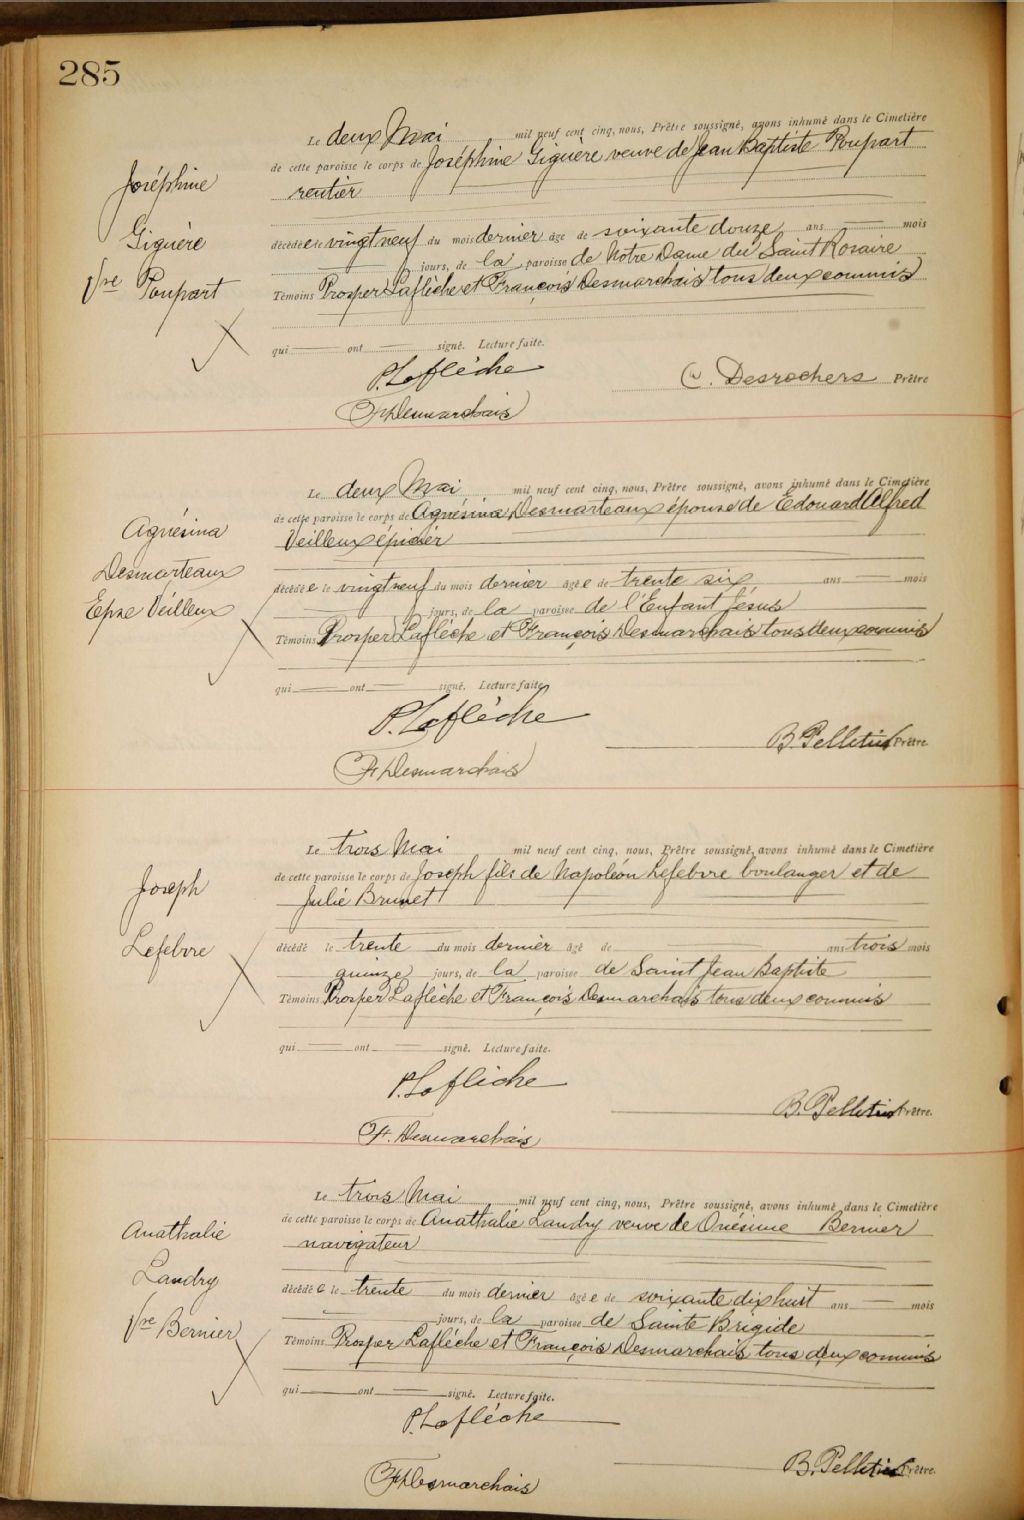 285
Le deux Mai mil neuf cent cinq, nous, Prêtre soussigné, avons inhumé dans le Cimetière
de cette paroisse le corps de Joséphine Giguère veuve de Jean Baptiste Poupart
rentier
Joséphine
Giguère
Vve Poupart
décédée le vingt neuf du mois dernier âgé de soixante douze ans — mois
jours, de la paroisse de Notre Dame du Saint Rosaire
Témoins Prosper Laflèche et François Desmarchais tous deux commis
qui — ont — signé. Lecture faite.
P. Laflèche
C. Desrochers Prêtre
F. Desmarchais
Le deux Mai mil neuf cent cinq, nous, Prêtre soussigné, avons inhumé dans le Cimetière
de cette paroisse le corps de Agnésina Desmarteaux épouse de Edouard Alfred
Veilleux épicier
Agnésina
Desmarteaux
Epse Veilleux
décédé e le vingt neuf du mois dernier âgé e de trente six ans — mois
jours, de la paroisse de l'Enfant Jésus
Témoins Prosper Laflèche et François Desmarchais tous deux commis
qui — ont — signé. Lecture faite.
P. Laflèche
B. Pelletier Prêtre.
F. Desmarchais
Le trois Mai mil neuf cent cinq, nous, Prêtre soussigné, avons inhumé dans le Cimetière
de cette paroisse le corps de Joseph fils de Napoléon Lefebvre boulanger et de
Julie Brunet
Joseph
Lefebvre
décédé le trente du mois dernier âgé de — ans trois mois
quinze jours, de la paroisse de Saint Jean Baptiste
Témoins Prosper Laflèche et François Desmarchais tous deux commis
qui — ont — signé. Lecture faite.
P. Laflèche
B. Pelletier Prêtre.
F. Desmarchais
Le trois Mai mil neuf cent cinq, nous, Prêtre soussigné, avons inhumé dans le Cimetière
de cette paroisse le corps de Anathalie Landry veuve de Onésime Bernier
navigateur
Anathalie
Landry
Vve Bernier
décédé e le trente du mois dernier âgé e de soixante dix huit ans — mois
jours, de la paroisse de Sainte Brigide
Témoins Prosper Laflèche et François Desmarchais tous deux commis
qui — ont — signé. Lecture faite.
P. Laflèche
B. Pelletier Prêtre.
F. Desmarchais